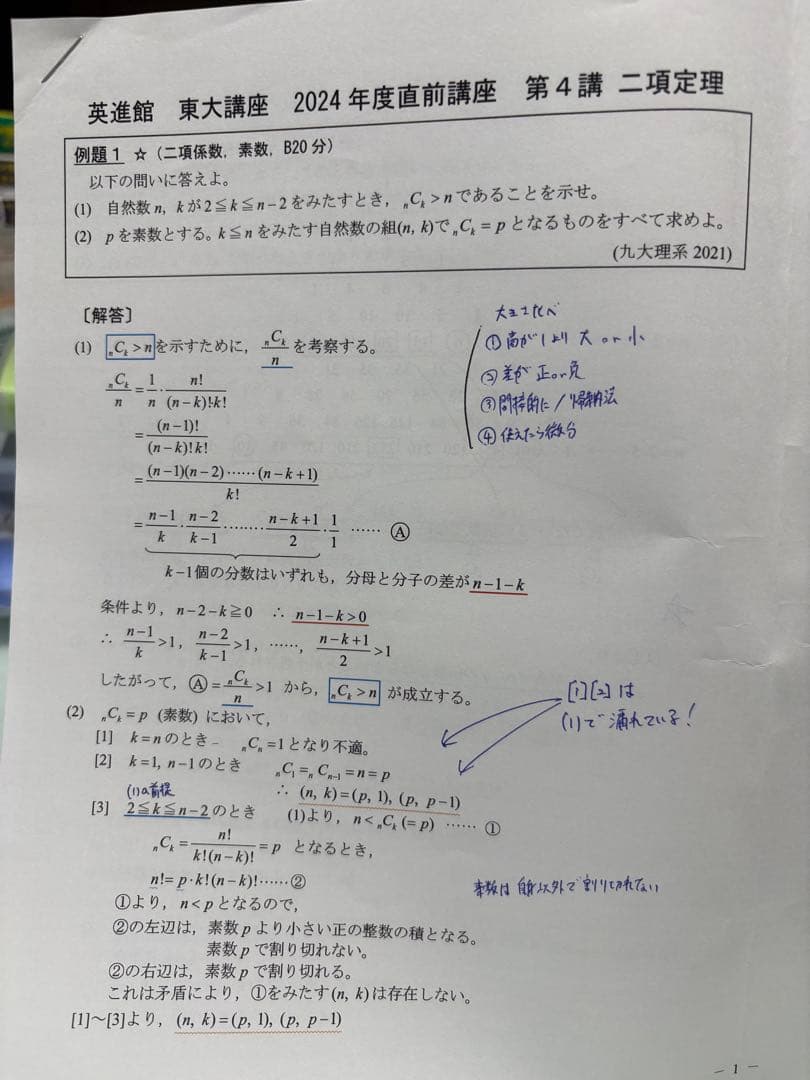 英進館 東大講座 2024年度直前講座 第4講 二項定理
例題1 ☆(二項係数, 素数, B20分)
以下の問いに答えよ。
(1) 自然数n, kが2≦k≦n−2をみたすとき, nCk>nであることを示せ。
(2) pを素数とする。k≦nをみたす自然数の組(n, k)でnCk=pとなるものをすべて求めよ。
(九大理系 2021)
〔解答〕
(1) nCk>nを示すために, nCk/nを考察する。
nCk/n=1/n・n!/(n−k)!k!
=(n−1)!/(n−k)!k!
=(n−1)(n−2)……(n−k+1)/k!
=n−1/k・n−2/k−1・……‥・n−k+1/2・1/1 …… Ⓐ
k−1個の分数はいずれも, 分母と分子の差がn−1−k
条件より, n−2−k≧0 ∴ n−1−k>0
∴ n−1/k>1, n−2/k−1>1, ……, n−k+1/2>1
したがって, Ⓐ=nCk/n>1 から, nCk>n が成立する。
(2) nCk=p (素数) において,
[1] k=nのとき nCn=1となり不適。
[2] k=1, n−1のとき nC1=nCn−1=n=p
∴ (n, k)=(p, 1), (p, p−1)
(1)の前提
[3] 2≦k≦n−2のとき (1)より, n<nCk(=p) …… ①
nCk=n!/k!(n−k)!=p となるとき,
n!=p・k!(n−k)!……②
①より, n<pとなるので,
②の左辺は, 素数pより小さい正の整数の積となる。
素数pで割り切れない。
②の右辺は, 素数pで割り切れる。
これは矛盾により, ①をみたす(n, k)は存在しない。
[1]〜[3]より, (n, k)=(p, 1), (p, p−1)
大小くらべ
①商が1より 大 or 小
②差が 正or負
③間接的に/帰納法
④使えたら微分
[1][2]は
(1)で漏れている!
素数は自身以外で割りきれない
− 1 −